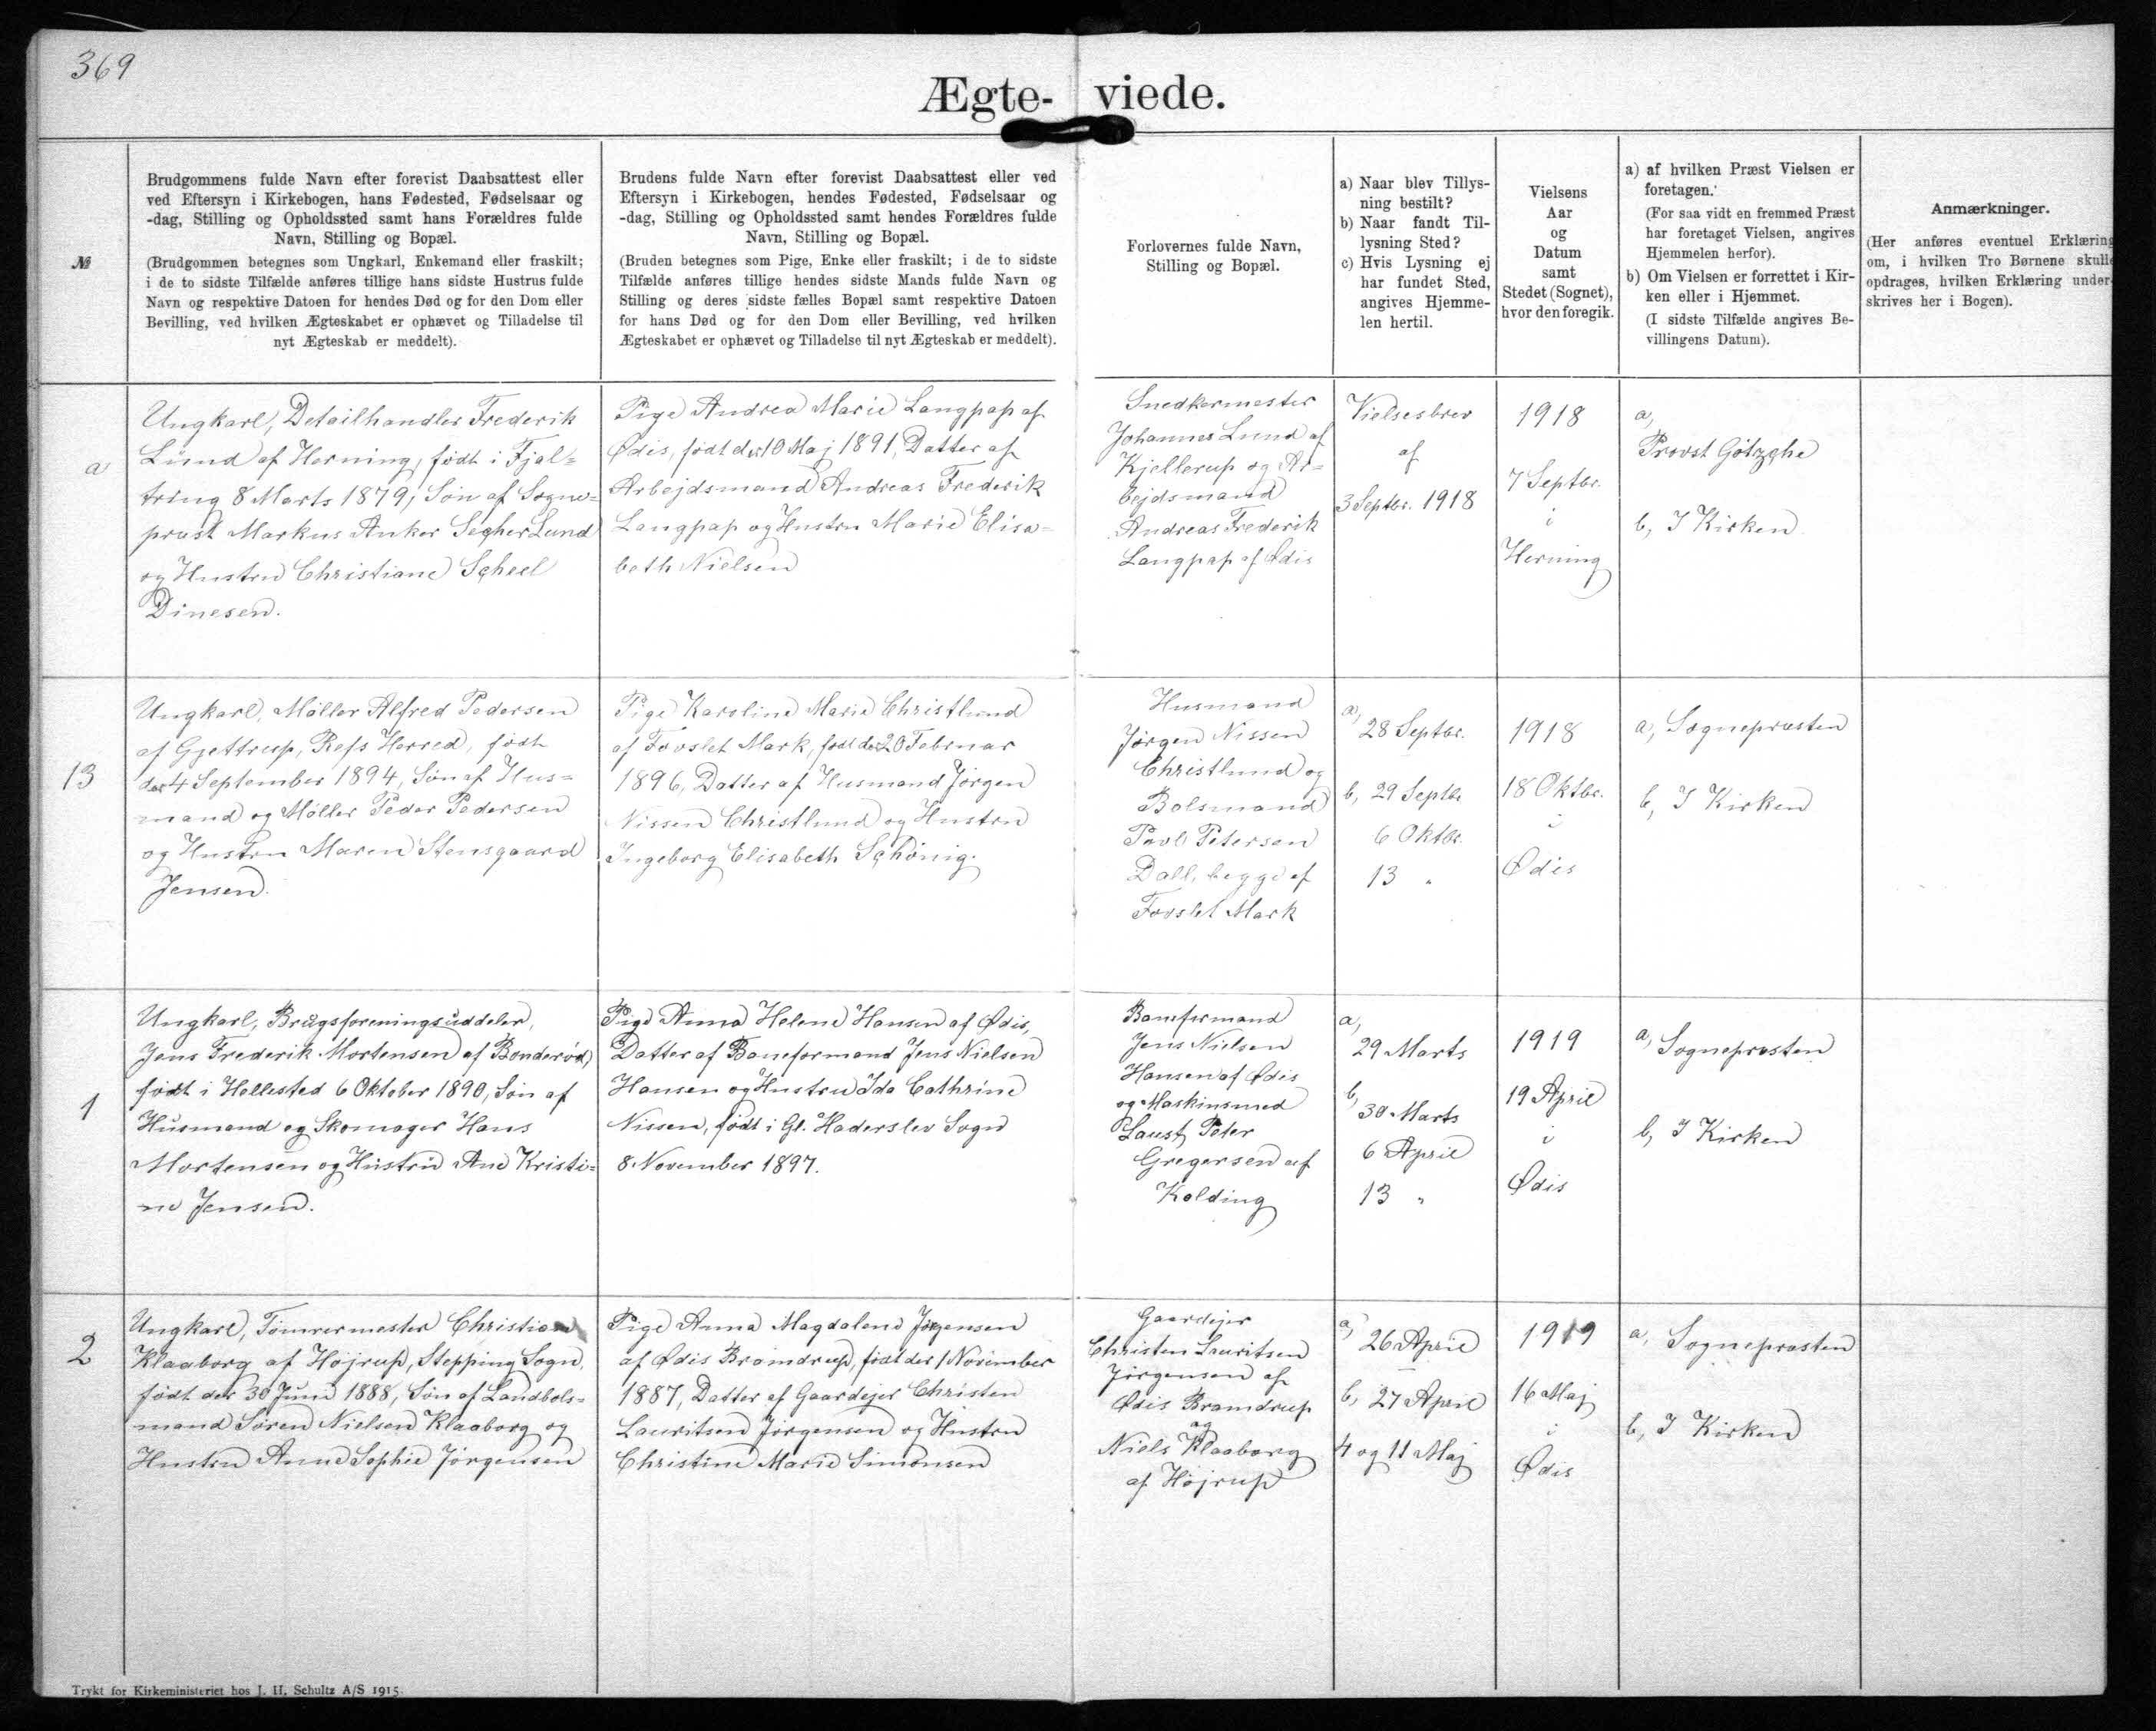 369
Ægte- viede.
№
Brudgommens fulde Navn efter forevist Daabsattest eller
ved Eftersyn i Kirkebogen, hans Fødested, Fødselsaar og
-dag, Stilling og Opholdssted samt hans Forældres fulde
Navn, Stilling og Bopæl.
(Brudgommen betegnes som Ungkarl, Enkemand eller fraskilt;
i de to sidste Tilfælde anføres tillige hans sidste Hustrus fulde
Navn og respektive Datoen for hendes Død og for den Dom eller
Bevilling, ved hvilken Ægteskabet er ophævet og Tilladelse til
nyt Ægteskab er meddelt).
Brudens fulde Navn efter forevist Daabsattest eller ved
Eftersyn i Kirkebogen, hendes Fødested, Fødselsaar og
-dag, Stilling og Opholdssted samt hendes Forældres fulde
Navn, Stilling og Bopæl.
(Bruden betegnes som Pige, Enke eller fraskilt; i de to sidste
Tilfælde anføres tillige hendes sidste Mands fulde Navn og
Stilling og deres sidste fælles Bopæl samt respektive Datoen
for hans Død og for den Dom eller Bevilling, ved hvilken
Ægteskabet er ophævet og Tilladelse til nyt Ægteskab er meddelt).
Forlovernes fulde Navn,
Stilling og Bopæl.
a) Naar blev Tillys-
ning bestilt?
b) Naar fandt Til-
lysning Sted?
c) Hvis Lysning ej
har fundet Sted,
angives Hjemme-
len hertil.
Vielsens
Aar
og
Datum
samt
Stedet (Sognet),
hvor den foregik.
a) af hvilken Præst Vielsen er
foretagen.
(For saa vidt en fremmed Præst
har foretaget Vielsen, angives
Hjemmelen herfor).
b) Om Vielsen er forrettet i Kir-
ken eller i Hjemmet.
(I sidste Tilfælde angives Be-
villingens Datum).
Anmærkninger.
(Her anføres eventuel Erklæring
om, i hvilken Tro Børnene skulle
opdrages, hvilken Erklæring under-
skrives her i Bogen).
a
Ungkarl, Detailhandler Frederik
Lund af Herning, født i Fjal=
tring 8 Marts 1879, Søn af Sogne=
præst Markus Anker Secher Lund
og Hustru Christiane Scheel
Dinesen.
Pige Andrea Marie Langpap af
Ødis, født der 10 Maj 1891, Datter af
Arbejdsmand Andreas Frederik
Langpap og Hustru Marie Elisa=
beth Nielsen
Snedkermester
Johannes Lund af
Kjellerup og Ar=
bejdsmand
Andreas Frederik
Langpap af Ødis
Vielsesbrev
af
3 Septbr. 1918
1918
7 Septbr.
i
Herning
a,
Provst Götzche
b, I Kirken
13
Ungkarl, Møller Alfred Pedersen
af Gjettrup, Refs Herred, født
der 4 September 1894, Søn af Hus=
mand og Møller Peder Pedersen
og Hustru Maren Stensgaard
Jensen.
Pige Karoline Marie Christlund
af Fovslet Mark, født der 20 Februar
1896, Datter af Husmand Jørgen
Nissen Christlund og Hustru
Ingeborg Elisabeth Schönig.
Husmand
Jørgen Nissen
Christlund og
Bolsmand
Povl Petersen
Dall, begge af
Fovslet Mark
a,
28 Septbr.
b, 29 Septbr
6 Oktbr.
13 "
1918
18 Oktbr.
i
Ødis
a, Sognepræsten
b, I Kirken
1
Ungkarl, Brugsforeningsuddeler,
Jens Frederik Mortensen af Bonderød,
født i Hellested 6 Oktober 1890, Søn af
Husmand og Skomager Hans
Mortensen og Hustru Ane Kristi=
ne Jensen.
Pige Anna Helene Hansen af Ødis,
Datter af Baneformand Jens Nielsen
Hansen og Hustru Ida Cathrine
Nissen, født i Gl. Haderslev Sogn
8 November 1897.
Baneformand
Jens Nielsen
Hansen af Ødis
og Maskinsmed
Laust Peter
Gregersen af
Kolding
a,
29 Marts
b,
30 Marts
6 April
13 "
1919
19 April
i
Ødis
a, Sognepræsten
b, I Kirken
2
Ungkarl, Tømrermester Christian
Klaaborg af Højrup, Stepping Sogn,
født der 30 Juni 1888, Søn af Landbols=
mand Søren Nielsen Klaaborg og
Hustru Anne Sophie Jørgensen
Pige Anna Magdalene Jørgensen
af Ødis Bramdrup, født der 1 November
1887, Datter af Gaardejer Christen
Lauritsen Jørgensen og Hustru
Christine Marie Simonsen
Gaardejer
Christen Lauritsen
Jørgensen af
Ødis Bramdrup
og
Niels Klaaborg
af Højrup
a,
26 April
b, 27 April
4 og 11 Maj
1919
16 Maj
i
Ødis
a, Sognepræsten
b, I Kirken
Trykt for Kirkeministeriet hos J. H. Schultz A/S 1915.